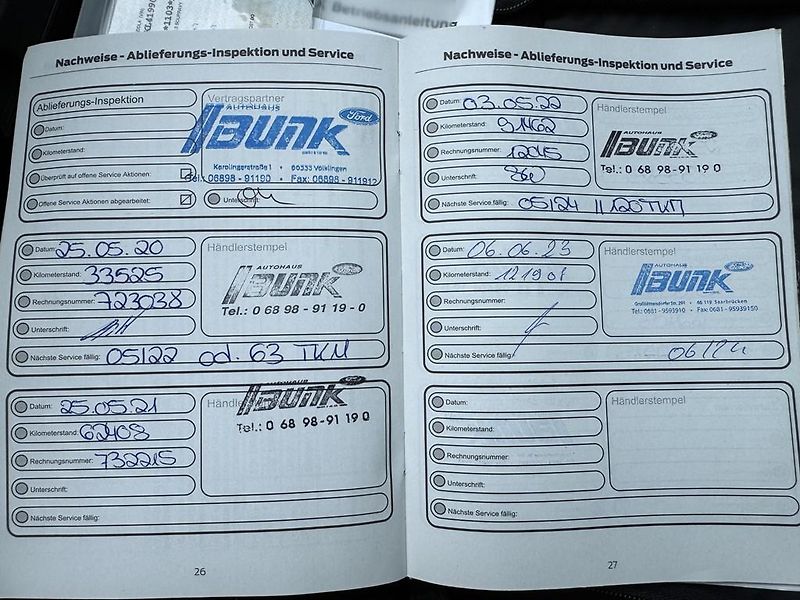 Betriebsanleitung
Nachweise - Ablieferungs-Inspektion und Service
Ablieferungs-Inspektion
Datum:
Kilometerstand:
Überprüft auf offene Service Aktionen:
Offene Service Aktionen abgearbeitet:
Vertragspartner
AUTOHAUS
BUNK
Ford
Karolingerstraße 1 • 66333 Völklingen
Tel.: 06898 - 91190 • Fax: 06898 - 911912
Unterschrift:
Datum: 25.05.20
Kilometerstand: 33525
Rechnungsnummer: 723038
Unterschrift:
Nächste Service fällig: 05/22 od. 63 TKM
Händlerstempel
AUTOHAUS
BUNK
Tel.: 0 68 98 - 91 19 - 0
Datum: 25.05.21
Kilometerstand: 62408
Rechnungsnummer: 732215
Unterschrift:
Nächste Service fällig:
Händlerstempel
AUTOHAUS
BUNK
Tel.: 0 68 98-91 19 0
26
Nachweise - Ablieferungs-Inspektion und Service
Datum: 03.05.22
Kilometerstand: 91462
Rechnungsnummer: 12045
Unterschrift:
Nächste Service fällig: 05/24 // 120 TKM
Händlerstempel
AUTOHAUS
BUNK
Tel.: 0 68 98-91 19 0
Datum: 06.06.23
Kilometerstand: 121901
Rechnungsnummer:
Unterschrift:
Nächste Service fällig: 06/24
Händlerstempel
AUTOHAUS
BUNK
66119 Saarbrücken
Tel.: 0681 - 9593910 • Fax: 0681 - 95939150
Datum:
Kilometerstand:
Rechnungsnummer:
Unterschrift:
Nächste Service fällig:
Händlerstempel
27